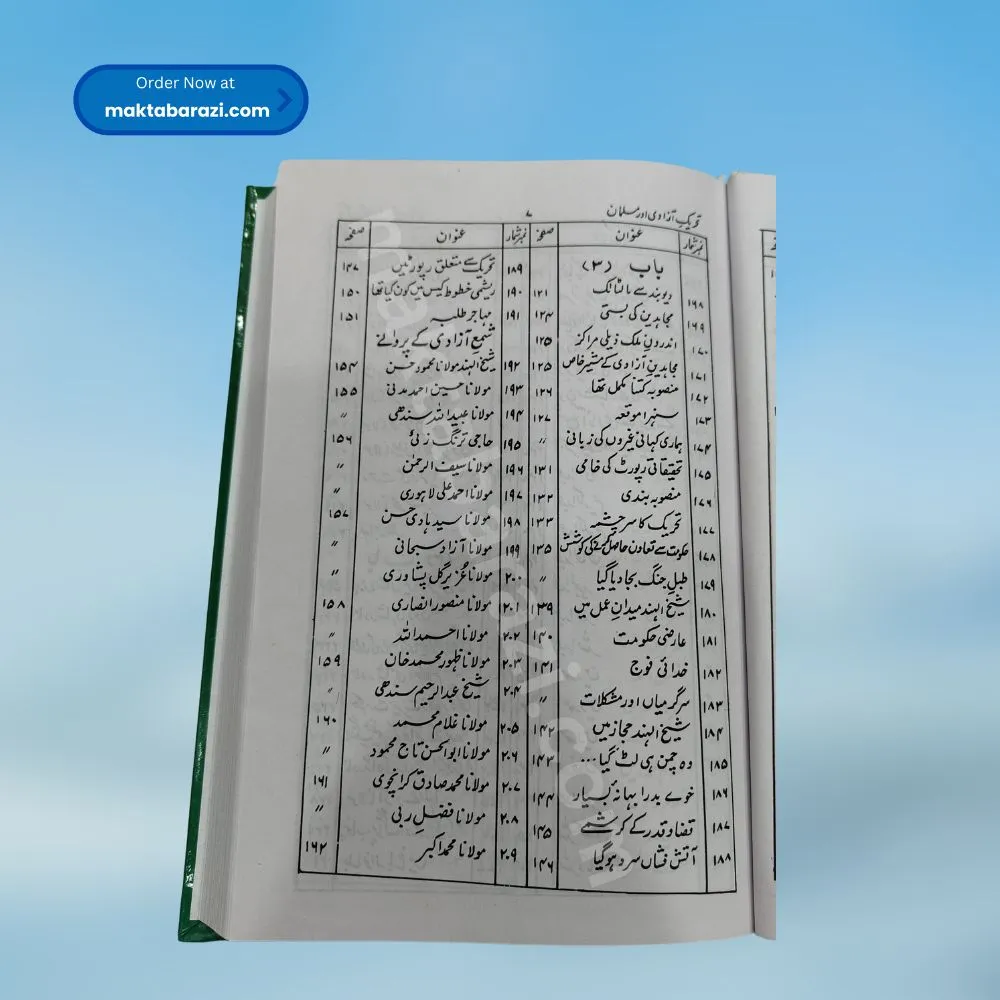 Order Now at
maktabarazi.com
تحریک آزادی اور مسلمان
۷
نمبر شمار عنوان صفحہ
باب (۳)
۱۶۸ دیوبند سے مالٹا تک ۱۲۱
۱۶۹ مجاہدین کی بستی ۱۲۴
۱۷۰ اندرون ملک ذیلی مراکز ۱۲۵
۱۷۱ مجاہدین آزادی کے مشیر خاص ۱۲۵
۱۷۲ منصوبہ کتنا مکمل تھا ۱۲۶
۱۷۳ سنہرا موقعہ ۱۲۷
۱۷۴ ہماری کہانی غیروں کی زبانی ״
۱۷۵ تحقیقاتی رپورٹ کی خامی ۱۳۱
۱۷۶ منصوبہ بندی ۱۳۲
۱۷۷ تحریک کا سرچشمہ ۱۳۳
۱۷۸ حکومت سے تعاون حاصل کرنے کی کوشش ۱۳۵
۱۷۹ طبل جنگ بجا دیا گیا ״
۱۸۰ شیخ الہند میدانِ عمل میں ۱۳۹
۱۸۱ عارضی حکومت ۱۴۰
۱۸۲ خدائی فوج ۱۴۱
۱۸۳ سرگرمیاں اور مشکلات ״
۱۸۴ شیخ الہند حجاز میں ۱۴۲
۱۸۵ وہ چمن ہی لٹ گیا... ۱۴۳
۱۸۶ خوے بد را بہانہ بسیار ۱۴۴
۱۸۷ قضا و قدر کے کرشمے ۱۴۵
۱۸۸ آتش فشاں سرد ہوگیا ۱۴۶
نمبر شمار عنوان صفحہ
۱۸۹ تحریک سے متعلق رپورٹیں ۱۴۷
۱۹۰ ریشمی خطوط کیس میں کون کیا تھا ۱۵۰
۱۹۱ مہاجر طلبہ ۱۵۱
شمعِ آزادی کے پروانے
۱۹۲ شیخ الہند مولانا محمود حسن ۱۵۴
۱۹۳ مولانا حسین احمد مدنی ۱۵۵
۱۹۴ مولانا عبید اللہ سندھی ״
۱۹۵ حاجی ترنگ زئی ۱۵۶
۱۹۶ مولانا سیف الرحمٰن ״
۱۹۷ مولانا احمد علی لاہوری ״
۱۹۸ مولانا سید ہادی حسن ۱۵۷
۱۹۹ مولانا آزاد سبحانی ״
۲۰۰ مولانا عُزیر گل پشاوری ״
۲۰۱ مولانا منصور انصاری ۱۵۸
۲۰۲ مولانا احمد اللہ ״
۲۰۳ مولانا ظہور محمد خان ۱۵۹
۲۰۴ شیخ عبدالرحیم سندھی ״
۲۰۵ مولانا غلام محمد ۱۶۰
۲۰۶ مولانا ابوالحسن تاج محمود ״
۲۰۷ مولانا محمد صادق کرانچوی ۱۶۱
۲۰۸ مولانا فضلِ ربی ״
۲۰۹ مولانا محمد اکبر ۱۶۲